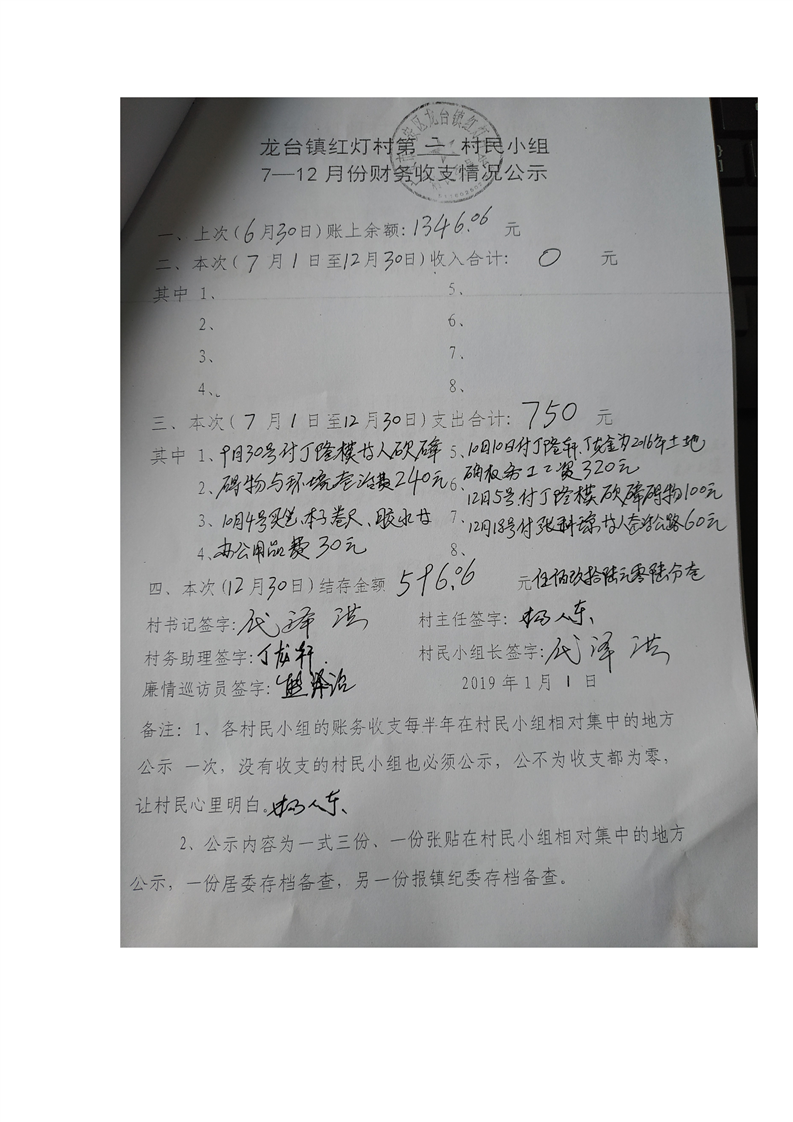 龙台镇红灯村第 二 村民小组
7—12月份财务收支情况公示
一、上次(6月30日)账上余额:1346.06 元
二、本次(7月1日至12月30日)收入合计: 0 元
其中 1、 5、
2、 6、
3、 7、
4、 8、
三、本次(7月1日至12月30日)支出合计: 750 元
其中 1、9月30号付丁隆模等人砍障 5、10月10日付丁隆轩、为2016年土地
2、碍物与环境费240元 6、确权务工工费320元
12月5号付丁隆模砍障碍物100元
3、10月4号买笔、本子卷尺、胶水等 7、12月18号付张科琼等人公路60元
4、办公用品费30元 8、
四、本次(12月30日)结存金额 596.06 元伍佰玖拾陆元零陆分
村书记签字:代泽洪 村主任签字:
村务助理签字:丁龙轩 村民小组长签字:代泽洪
廉情巡访员签字:熊泽治 2019年1月1日
备注:1、各村民小组的账务收支每半年在村民小组相对集中的地方
公示 一次,没有收支的村民小组也必须公示,公不为收支都为零,
让村民心里明白。
2、公示内容为一式三份、一份张贴在村民小组相对集中的地方
公示,一份居委存档备查,另一份报镇纪委存档备查。